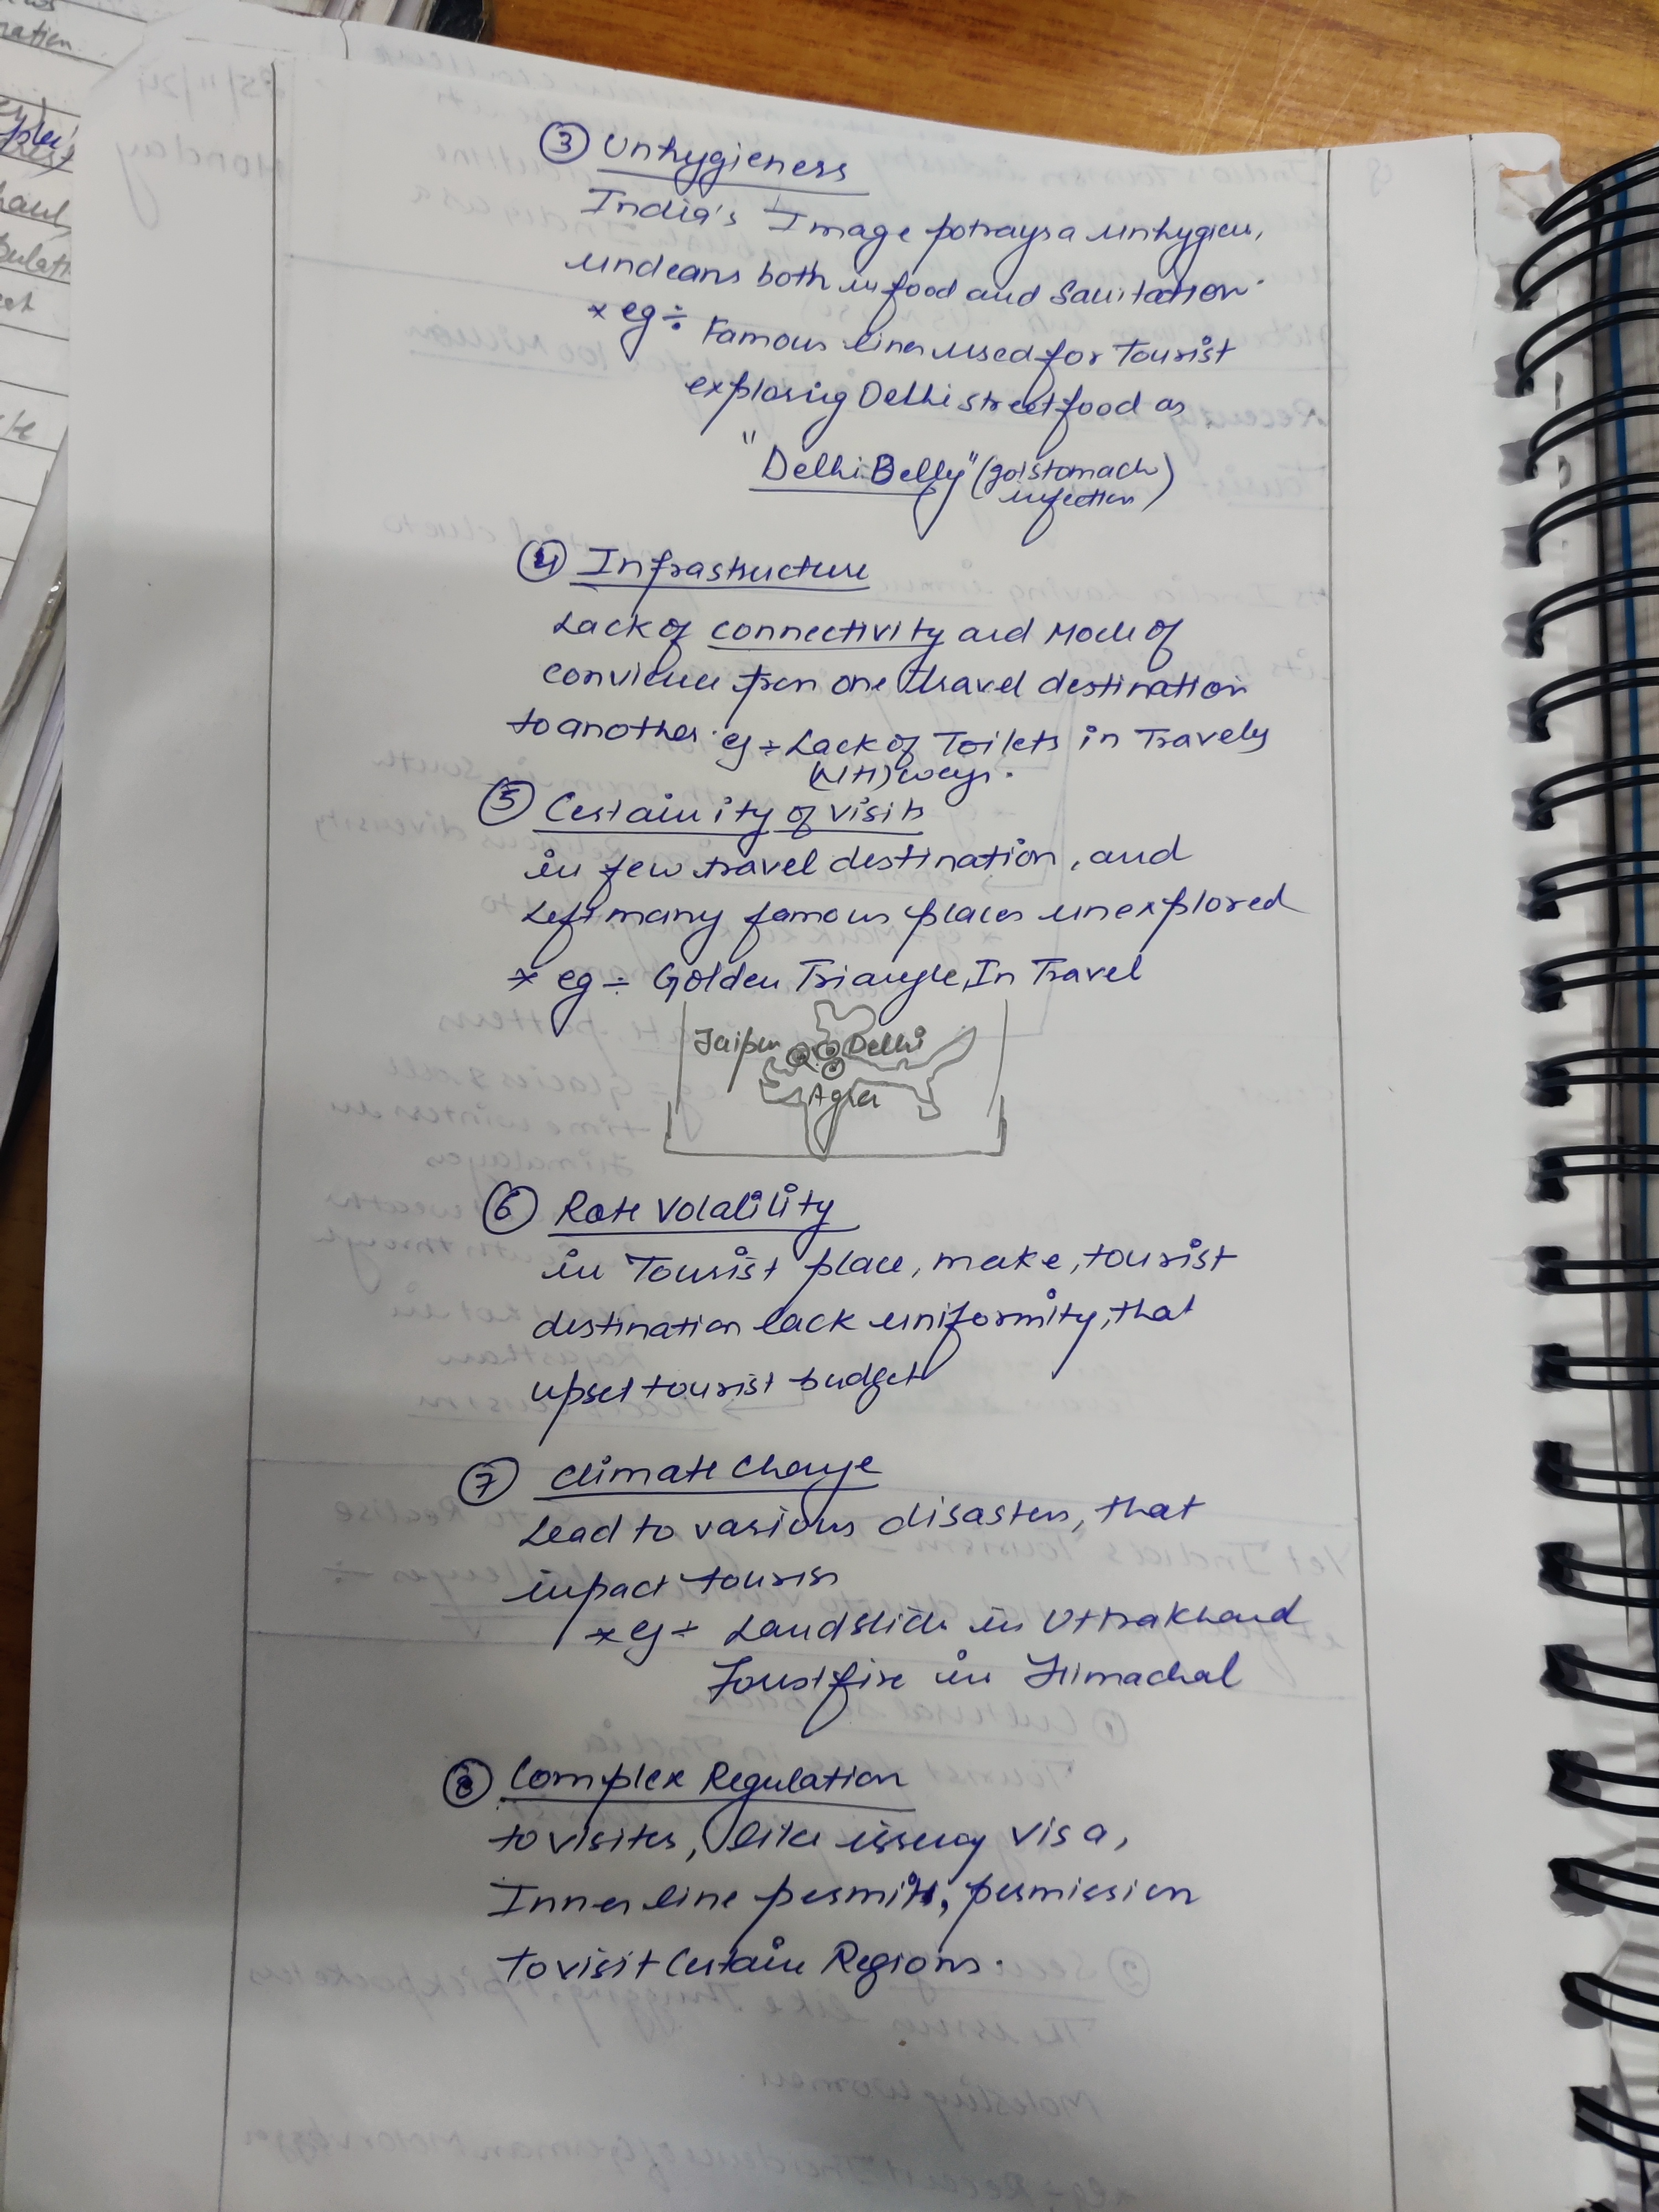 ③ Unhygieness
India's Image potrays a unhygien,
uncleans both in food and Sanitation.
* eg ÷ Famous lines used for Tourist
exploring Delhi street food as
"Delhi Belly" (got stomach
infection)
④ Infrastructure
Lack of connectivity and Mode of
convience from one travel destination
to another. eg ÷ Lack of Toilets in Travels
(NH) ways.
⑤ Certainity of visits
in few travel destination, and
Left many famous places unexplored
* eg ÷ Golden Triangle, In Travel
Jaipur Delhi
Agra
⑥ Rate Volality
in Tourist place, make, tourist
destination lack uniformity, that
upset tourist budget
⑦ Climate Change
Lead to various disasters, that
impact tourism
* eg ÷ Landslide in Uttrakhand
Forest fire in Himachal
⑧ Complex Regulation
to visites, like issuing visa,
Inner line permits, permission
to visit Certain Regions.